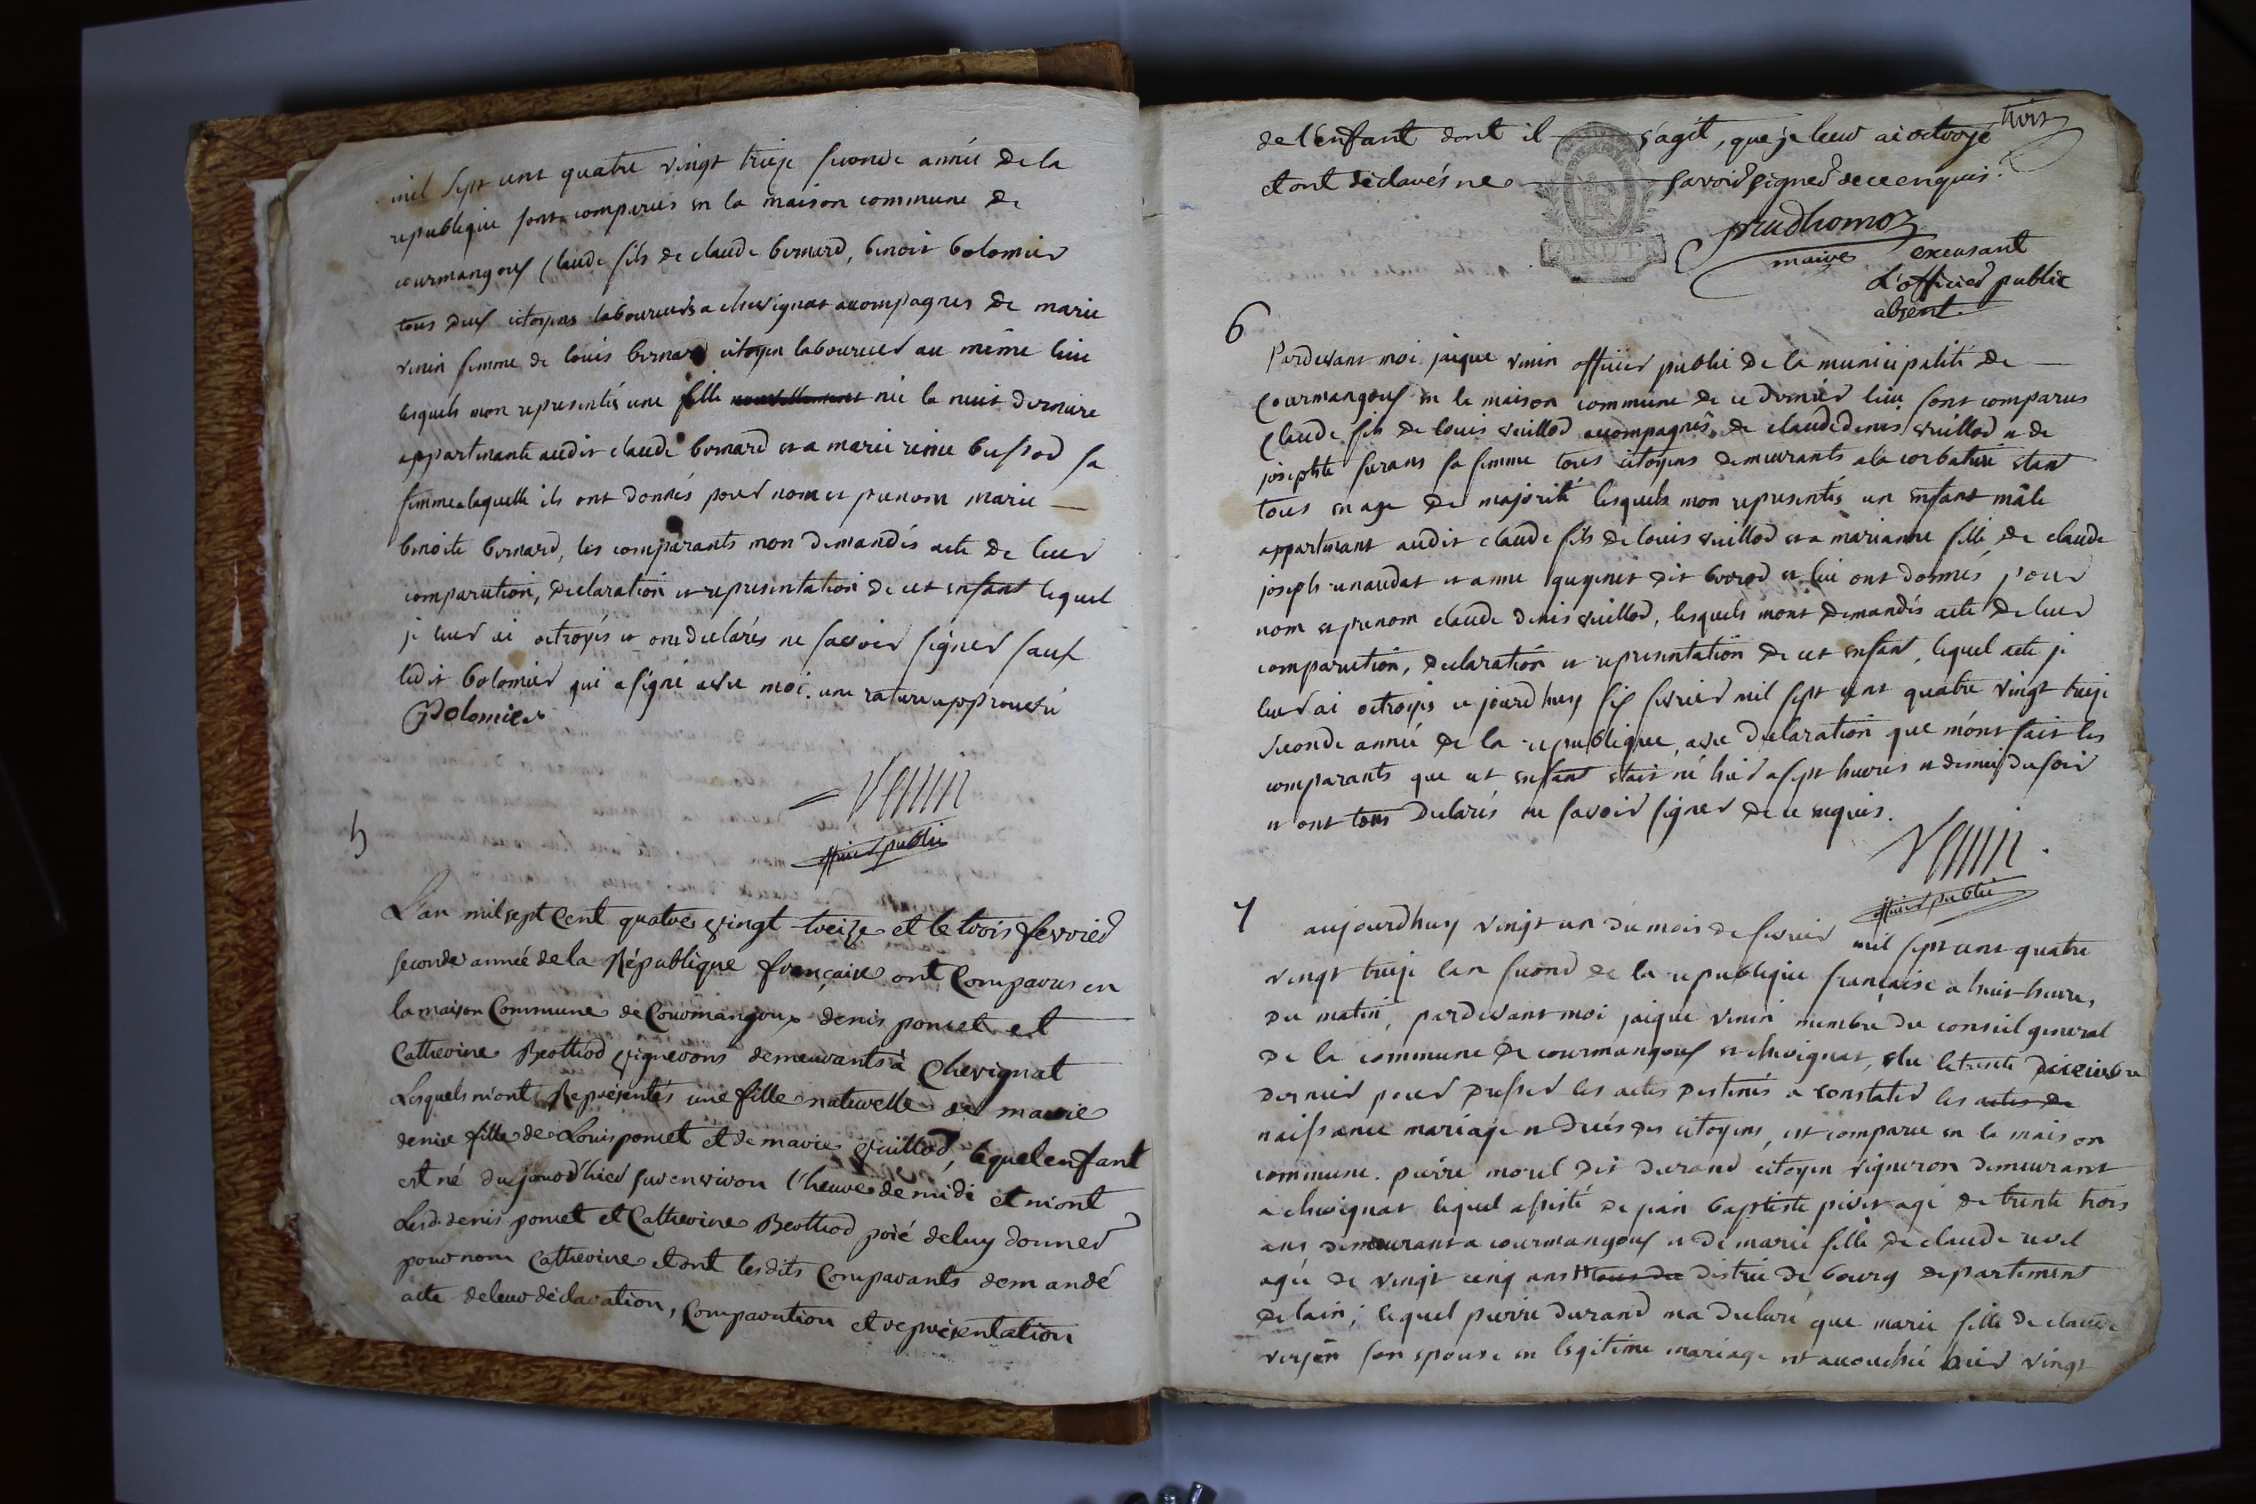 mil sept cent quatre vingt treize seconde année de la
republique sont comparus en la maison commune de
courmangoux Claude fils de claude bernard, benoit bolomier
tous deux citoyens laboureurs a chevignat accompagnes de marie
venin femme de louis bernard citoyen laboureur au même lieu
lesquels mon representés une fille nouvellement née la nuit derniere
appartenante audit claude bernard et a marie reine bussod sa
femme a laquelle ils ont donnés pour nom et prenom marie
benoite bernard, les comparants mon demandés acte de leur
comparution, declaration et representation de cet enfant lequel
je leur ai octroyés et ont declarés ne savoir signer sauf
ledit bolomier qui a signé avec moi. une rature approuvée
Bolomier
Venin
officier public
5
L'an mil sept Cent quatre vingt treize et le trois fevrier
seconde année de la République française ont Comparus en
la maison Commune de Courmangoux denis poncet et
Catherine Beothod vignerons demeurants à Chevignat
Lesquels m'ont Représentés une fille naturelle de marie
denise fille de Louis poncet et de marie vuillod, lequel enfant
est né du jourd'hier sur environ l'heure de midi et m'ont
Lesd. denis poncet et Catherine Beothod prié de luy donner
pour nom Catherine et ont lesdits Comparants demandé
acte de leur déclaration, Comparution et représentation
trois
de l'enfant dont il s'agit, que je leur ai octroyé
et ont déclarés ne savoir signer de ce enquis.
prudhomoz
maire excusant
L'officier public
absent.
6
Pardevant moi jaique venin officier public de la municipalité de
Courmangoux en la maison commune de ce dernier lieu sont comparus
Claude fils de louis vuillod accompagnés de claude denis vuillod et de
josephte surans sa femme tous citoyens demeurants a la corbature etant
tous en age de majorité lesquels mon representés un enfant mâle
appartenant audit claude fils de louis vuillod et a marianne fille de claude
joseph renaudat et anne guyenet dit borrod et lui ont donnés pour
nom et prenom claude denis vuillod, lesquels mont demandés acte de leur
comparution, declaration et representation de cet enfant, lequel acte je
leur ai octroyés ce jourdhuy six fevrier mil sept cent quatre vingt treize
seconde année de la republique, avec declaration que m'ont fait les
comparants que cet enfant etait né hier a sept heures et demie du soir
et ont tous declarés ne savoir signer de ce enquis.
Venin.
officier public
7
aujourdhuy vingt un du mois de fevrier mil sept cent quatre
vingt treize lan second de la republique française a huit heures
du matin, pardevant moi jaique venin membre du conseil general
de la commune de courmangoux et chevignat, elu le trente décembre
dernier pour dresser les actes destinés a constater les actes de
naissance mariage et decés des citoyens, est comparu en la maison
commune. pierre morel dit durand citoyen vigneron demeurant
a chevignat lequel assisté de jean baptiste pivet agé de trente trois
ans demeurant a courmangoux et de marie fille de claude revel
agée de vingt cinq ans tous du district de bourg departement
de lain; lequel pierre durand ma declaré que marie fille de claude
verjon son epouse en legitime mariage est accouchée hier vingt